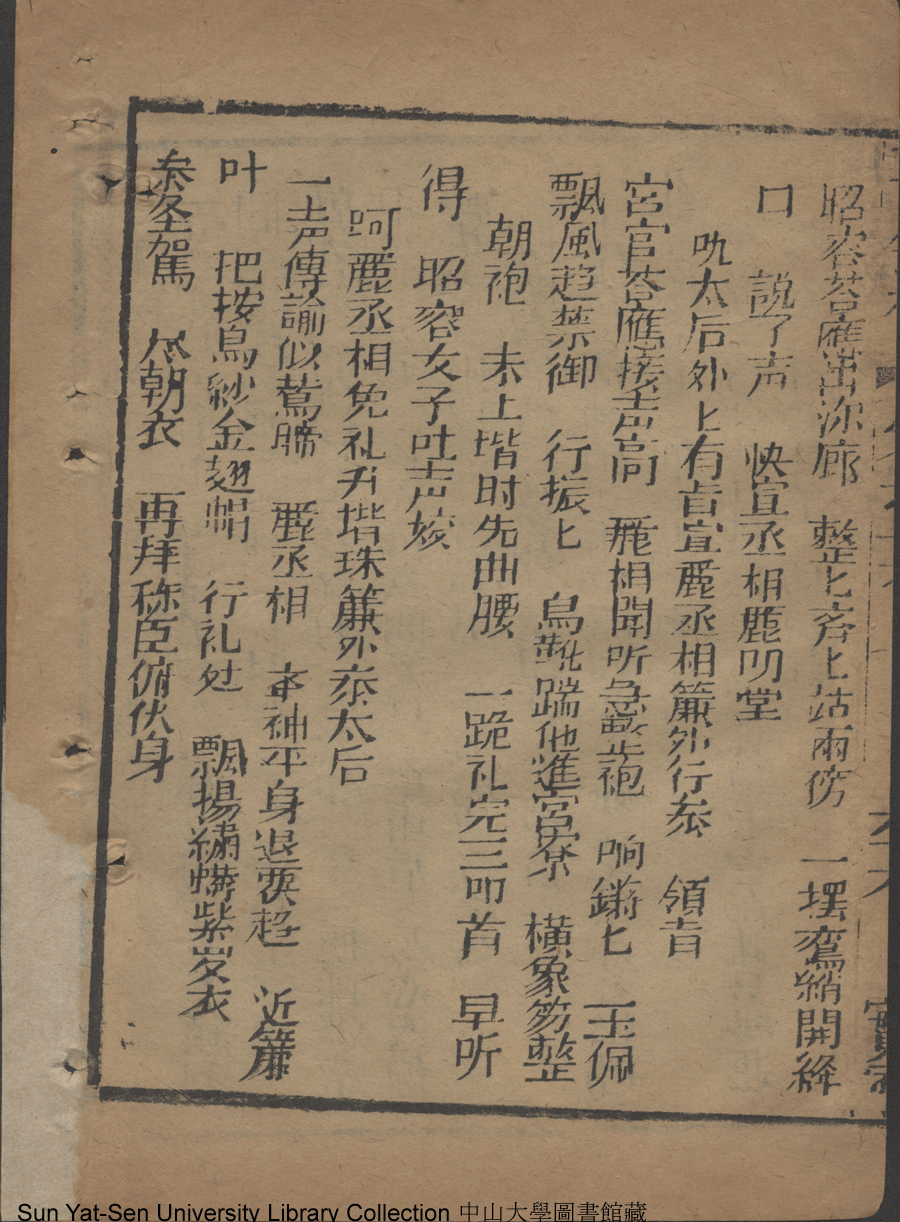 昭容荅應出深廊 整匕齐匕站兩傍 一擺鸾綃開絳
口 說了声 快宣丞相麗叩堂
吼太后外匕有旨宣麗丞相簾外行叅 領旨
宮官荅應接声高 麗相聞听急整袍 响鏘匕 玉佩
飄風趋禁御 行振匕 烏靴踹他進宮寮 橫象笏整
朝袍 未上堦时先曲腰 一跪礼完三叩首 早听
得 昭容女子吐声姣
呵麗丞相免礼升堦珠簾外叅太后
一声傳諭似鶯腸 麗丞相 平身退要趋 近簾
叶 把按烏紗金翅帽 行礼处 飄揚綉蟒紫衣
叅圣駕 朝衣 再拜称臣俯伏身
Sun Yat-Sen University Library Collection 中山大學圖書館藏